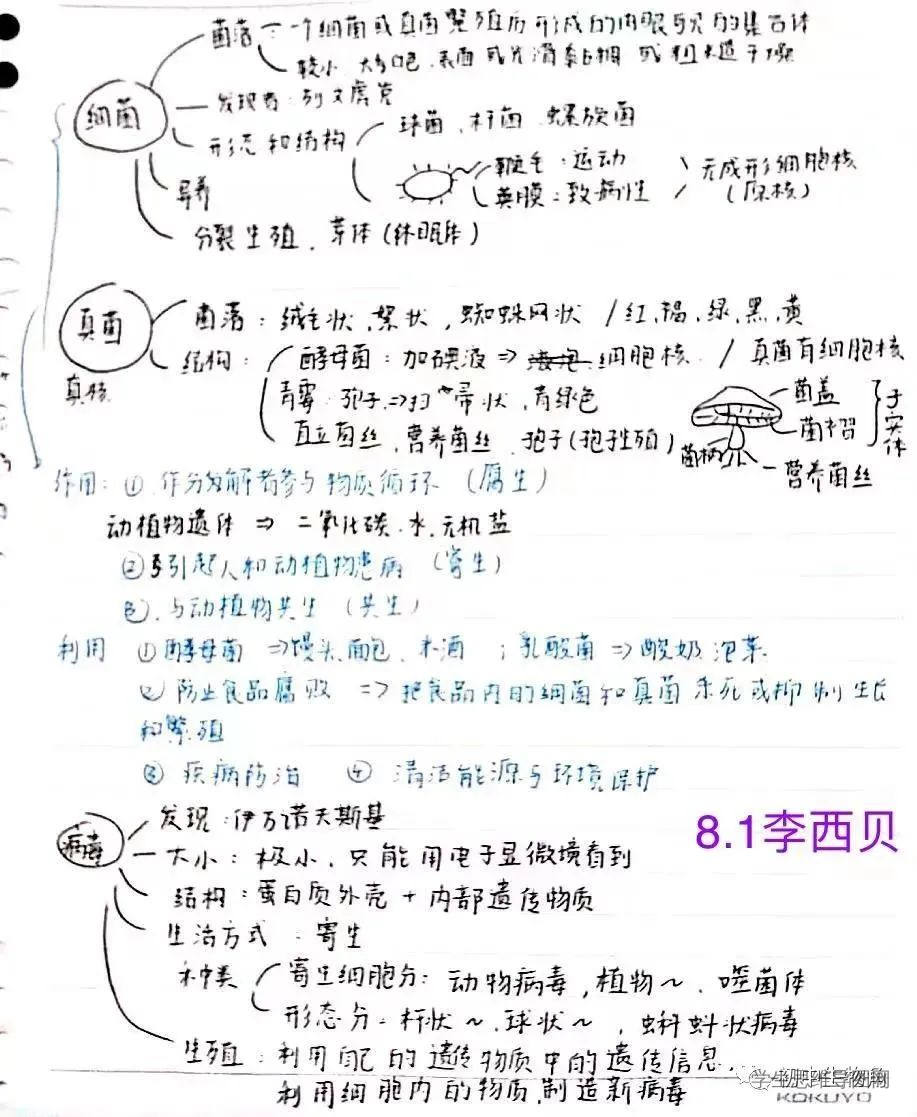 菌落:一个细菌或真菌繁殖后形成的肉眼可见的集合体
较小 大多白色,表面或光滑黏稠 或粗糙干燥
细菌
发现者:列文虎克
形态和结构
球菌、杆菌、螺旋菌
鞭毛:运动
荚膜:致病性
无成形细胞核
(原核)
异养
分裂生殖、芽体(休眠体)
真菌
真核
菌落:绒毛状、絮状,蜘蛛网状 / 红、褐、绿、黑、黄
结构:
酵母菌:加碘液⇒细胞核 / 真菌有细胞核
青霉:孢子⇒扫帚状,青绿色
直立菌丝、营养菌丝 孢子(孢子生殖)
菌盖
菌褶
菌柄
营养菌丝
子实体
作用:① 作为分解者参与物质循环 (腐生)
动植物遗体 ⇒ 二氧化碳、水、无机盐
②引起人和动植物患病 (寄生)
③、与动植物共生 (共生)
利用 ①酵母菌 ⇒馒头、面包、米酒 ;乳酸菌⇒酸奶 泡菜
② 防止食品腐败 ⇒ 把食品内的细菌和真菌杀死或抑制生长
和繁殖
③ 疾病防治 ④ 清洁能源与环境保护
病毒
发现:伊万诺夫斯基
大小:极小,只能用电子显微境看到
8.1李西贝
结构:蛋白质外壳 + 内部遗传物质
生活方式:寄生
种类
寄生细胞分:动物病毒,植物~、噬菌体
形态分:杆状~、球状~,蝌蚪状病毒
生殖:利用自己的遗传物质中的遗传信息,
利用细胞内的物质,制造新病毒
KOKUYO